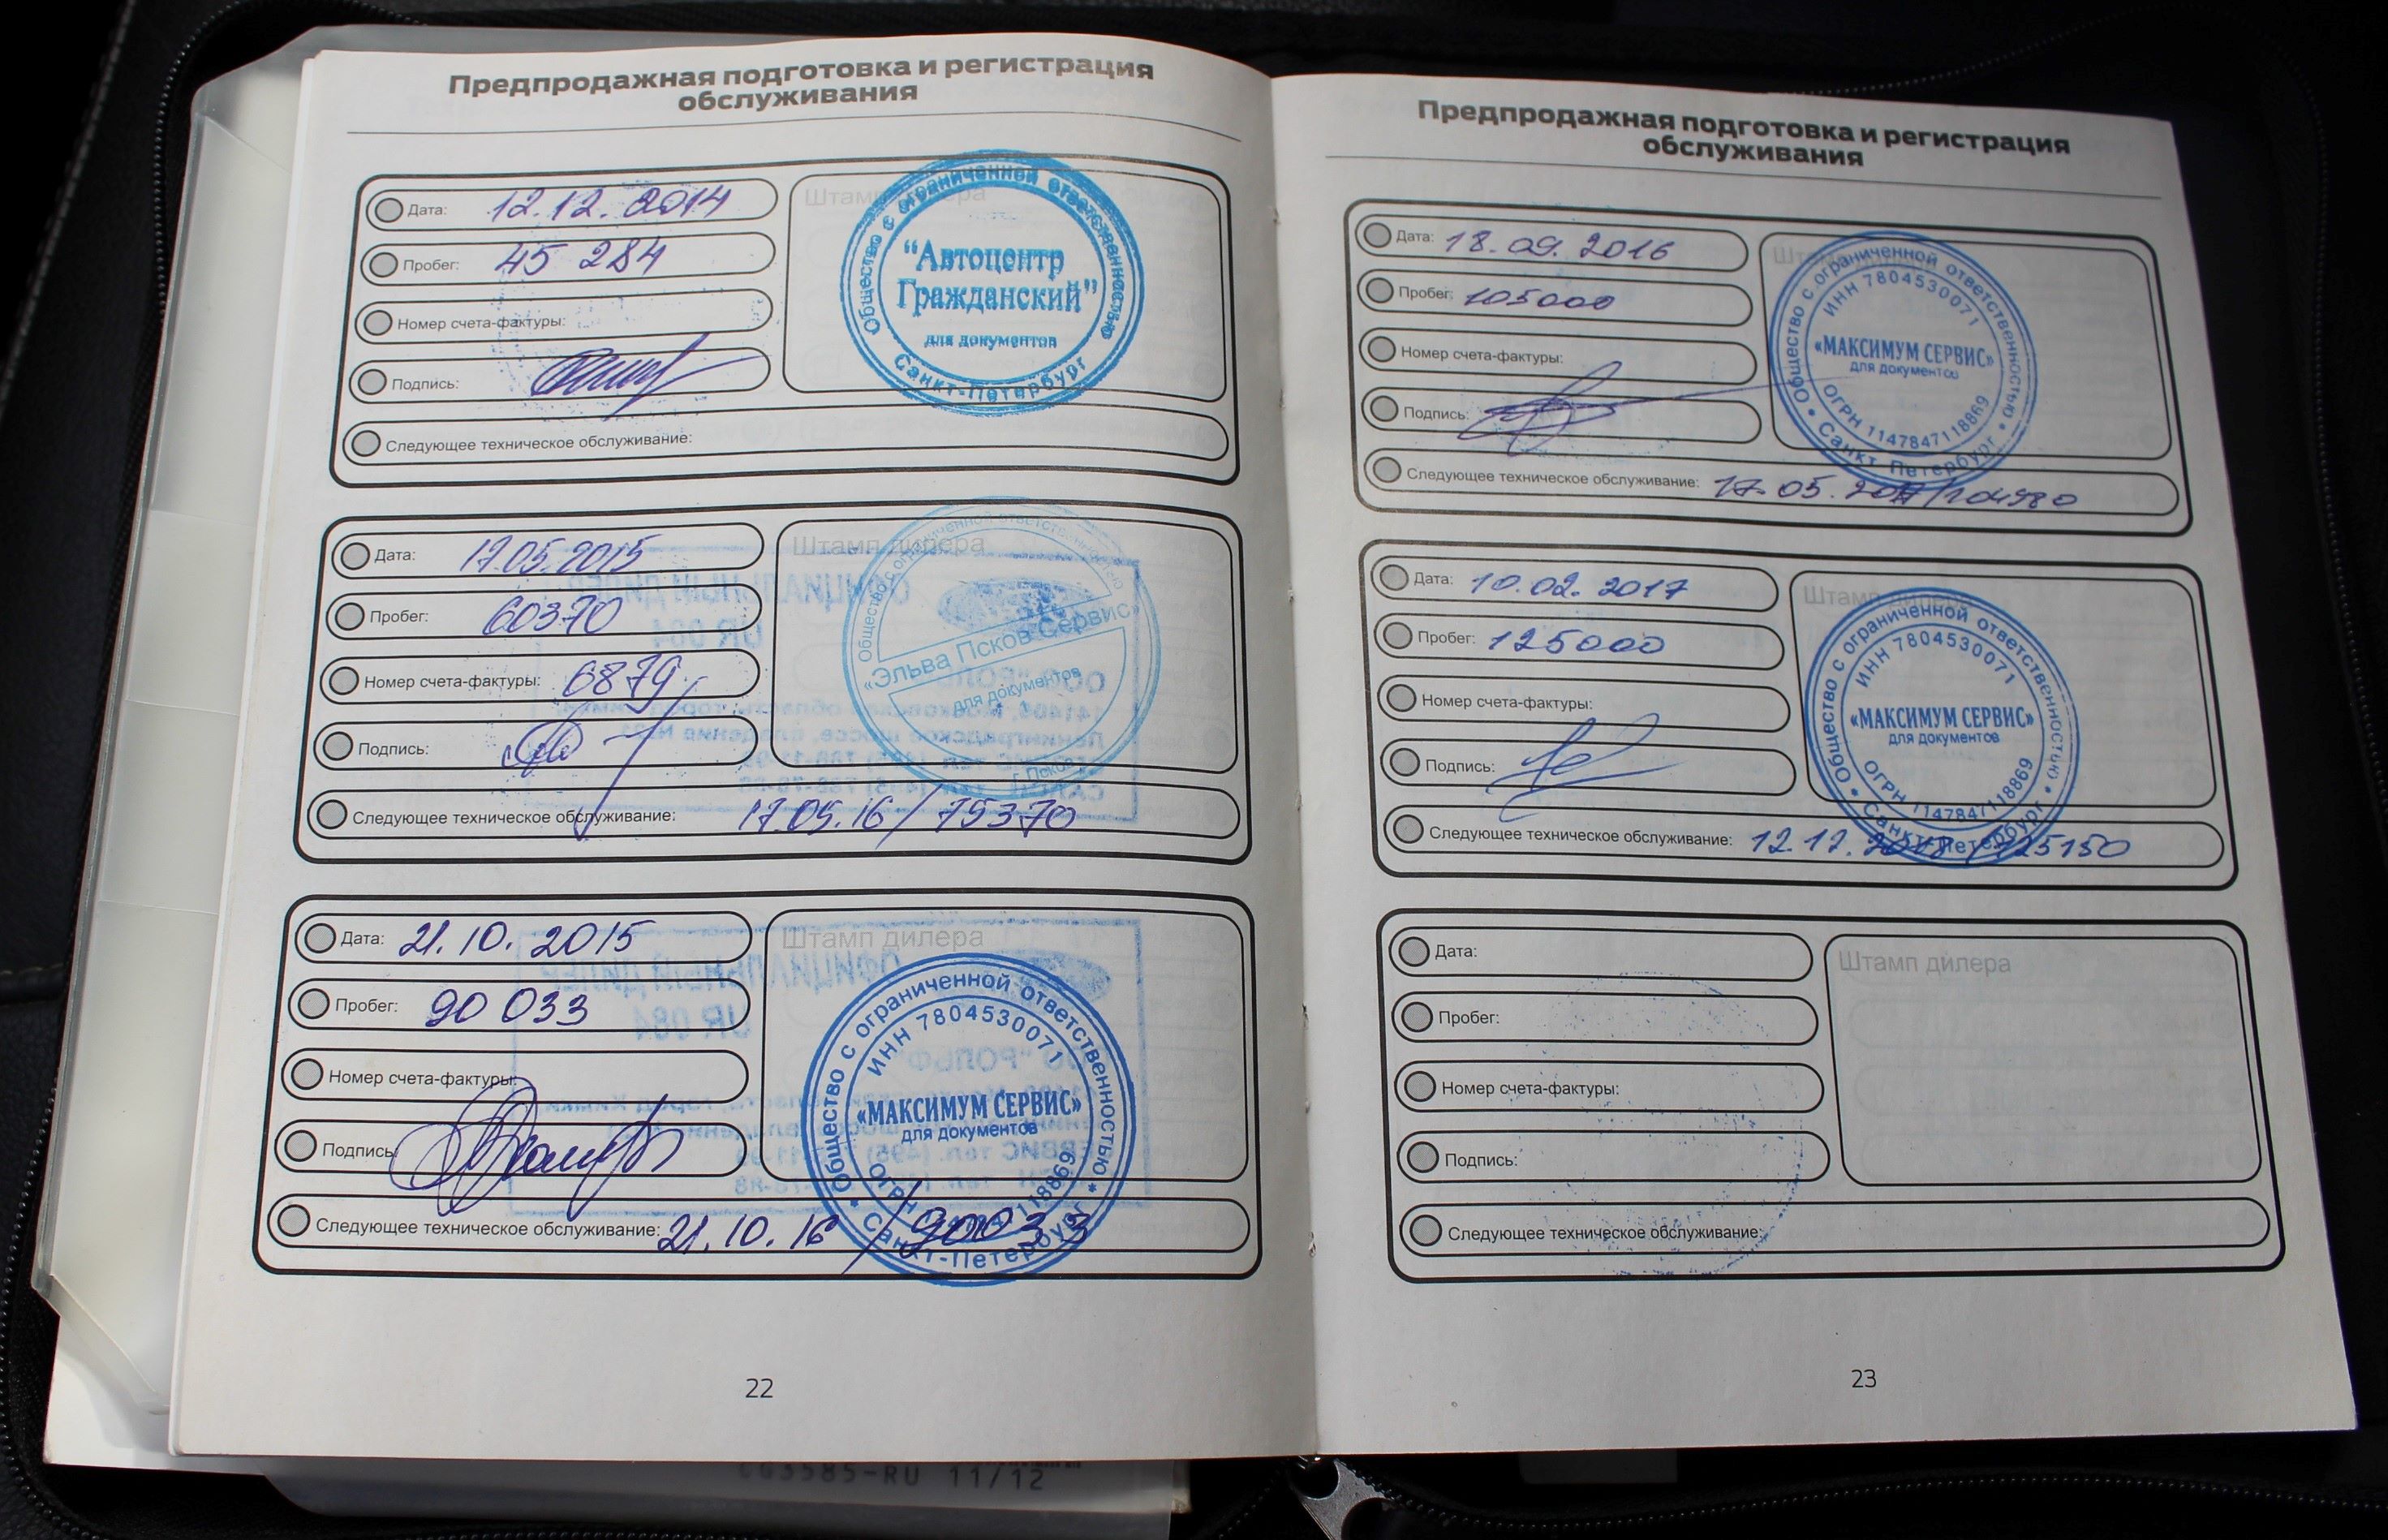 Предпродажная подготовка и регистрация
обслуживания
Дата: 12.12.2014
Пробег: 45 284
Номер счета-фактуры:
Подпись:
Следующее техническое обслуживание:
Штамп дилера
Общество с ограниченной ответственностью
"Автоцентр
Гражданский"
для документов
Санкт-Петербург
Дата: 17.05.2015
Пробег: 60370
Номер счета-фактуры: 6879
Подпись:
Следующее техническое обслуживание: 17.05.16/75370
Штамп дилера
Общество с ограниченной ответственностью
«Эльва Псков Сервис»
для документов
г. Псков
Дата: 21.10.2015
Пробег: 90 033
Номер счета-фактуры:
Подпись:
Следующее техническое обслуживание: 21.10.16 / 90033
Штамп дилера
Общество с ограниченной ответственностью
ИНН 7804530071
«МАКСИМУМ СЕРВИС»
для документов
ОГРН 1147847118869
Санкт-Петербург
22
Предпродажная подготовка и регистрация
обслуживания
Дата: 18.09.2016
Пробег: 105000
Номер счета-фактуры:
Подпись:
Следующее техническое обслуживание: 17.05.2017/104980
Штамп дилера
Общество с ограниченной ответственностью
ИНН 7804530071
«МАКСИМУМ СЕРВИС»
для документов
ОГРН 1147847118869
Санкт-Петербург
Дата: 10.02.2017
Пробег: 125000
Номер счета-фактуры:
Подпись:
Следующее техническое обслуживание: 12.12.2018 / 125150
Штамп дилера
Общество с ограниченной ответственностью
ИНН 7804530071
«МАКСИМУМ СЕРВИС»
для документов
ОГРН 1147847118869
Санкт-Петербург
Дата:
Пробег:
Номер счета-фактуры:
Подпись:
Следующее техническое обслуживание:
Штамп дилера
23
CG3585-RU 11/12